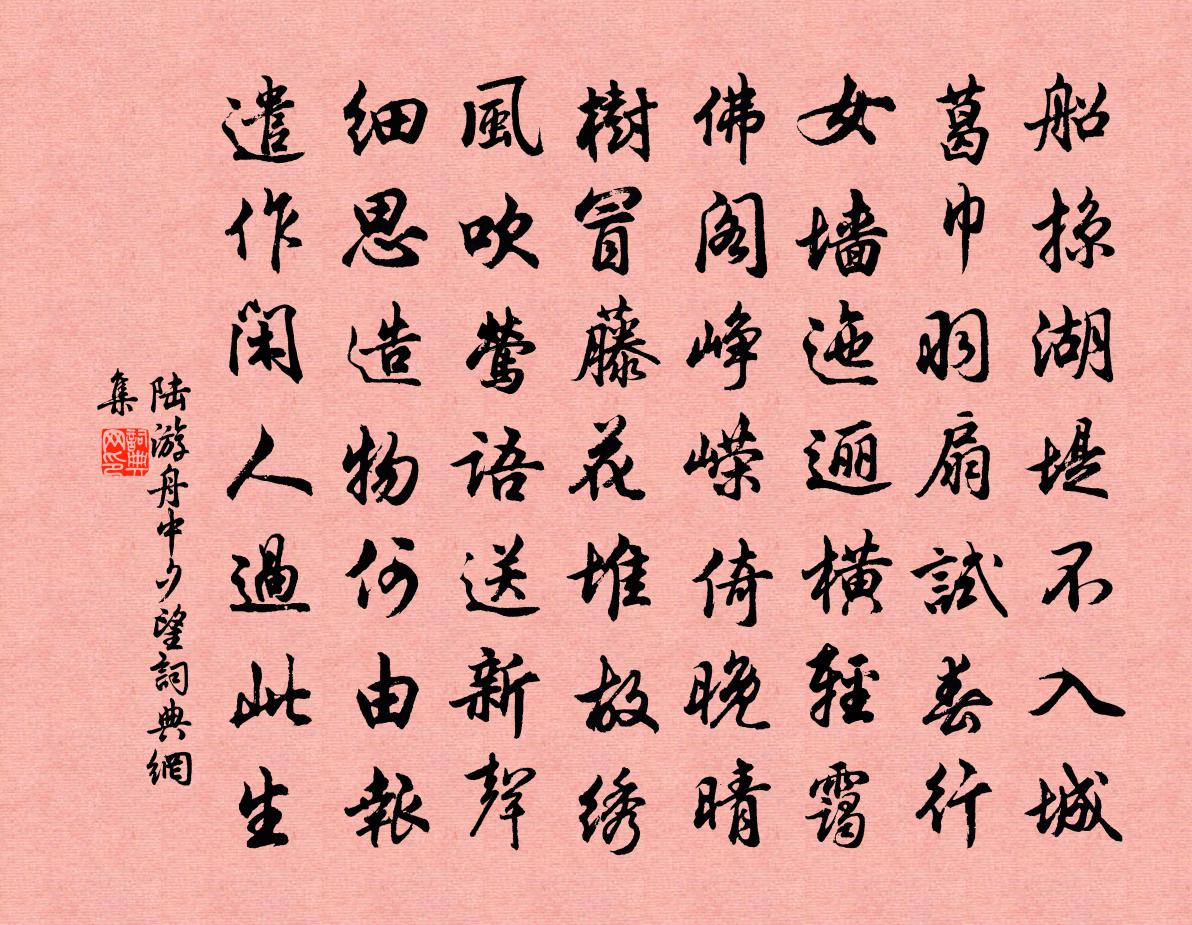 船掠湖堤不入城
葛巾羽扇試春行
女墙迤逦橫輕靄
佛阁峥嵘倚晚晴
樹冒藤花堆故绣
風吹鶯語送新聲
细思造物何由報
遣作闲人過此生
陆游舟中夕望詞典網
集
詞典
网印